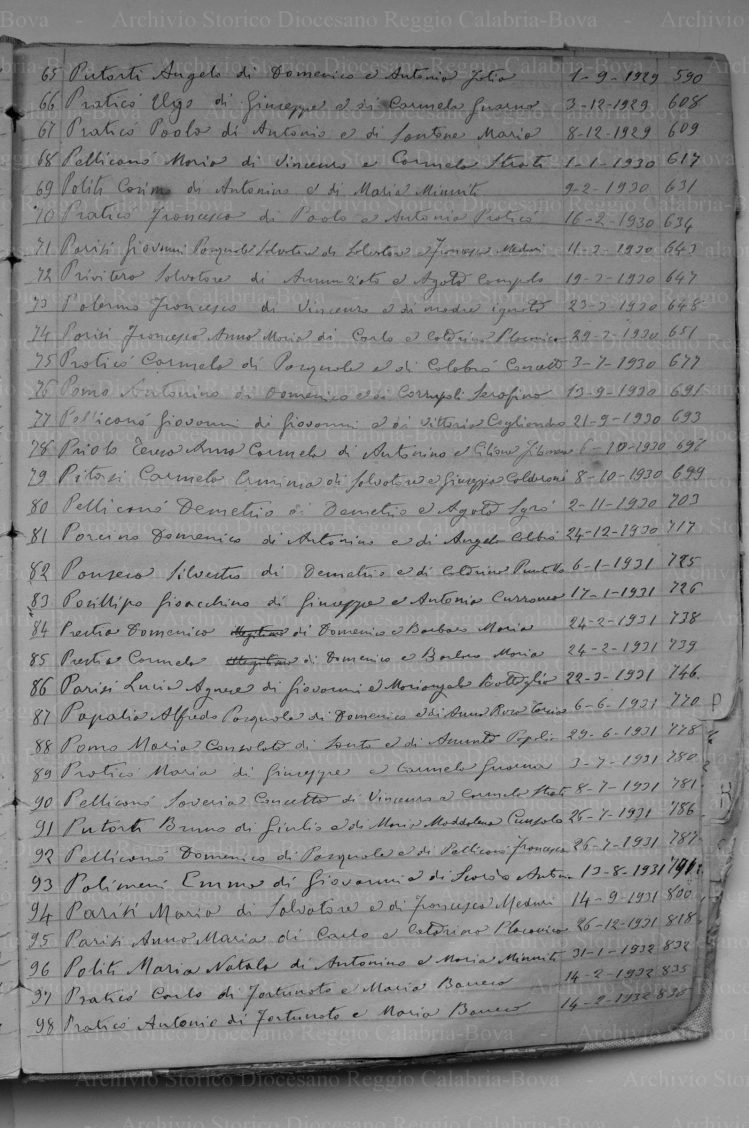 65 Putortì Angelo di Domenico e Antonia Jotia 1-9-1929 590
66 Praticò Ugo di Giuseppe e di Carmela Guarna 3-12-1929 608
67 Praticò Paolo di Antonio e di Santone Maria 8-12-1929 609
68 Pelliconò Maria di Vincenzo e Carmela Strati 1-1-1930 617
69 Politi Cosimo di Antonino e di Maria Minniti 9-2-1930 631
70 Praticò Francesca di Paolo e Antonia Praticò 16-2-1930 634
71 Parisi Giovanni Pasquale Salvatore di Salvatore e Francesca Meduri 643
72 Privitera Salvatore di Annunziato e Agata 647
73 Palermo Francesco di Vincenzo e di madre ignota 648
74 Parisi Francesca Anna Maria di Carlo e Caterina Placanica 651
75 Praticò Carmela di Pasquale e di Calabrò Concetta 3-7-1930 677
76 Pomo Antonino di Domenico e di Corrupoli Serafina 13-9-1930 691
77 Pelliconò Giovanni di Giovanni e di Vittoria Cogliandro 21-9-1930 693
78 Priolo Teresa Anna Carmela di Antonino e -10-1930 697
79 Pitasi Carmela Erminia di Salvatore e Giuseppa Calderoni 8-10-1930 699
80 Pelliconò Demetrio di Demetrio e Agata Sgrò 2-11-1930 703
81 Porcino Domenico di Antonino e di Angela Calabrò 24-12-1930 717
82 Pansera Silvestro di Demetrio e di Caterina 6-1-1931 725
83 Posillipo Gioacchino di Giuseppe e Antonia 17-1-1931 726
84 Prestia Domenico di Domenico e Barbaro Maria 24-2-1931 738
85 Prestia Carmela di Domenico e Barbaro Maria 24-2-1931 739
86 Parisi Lucia Agnese di Giovanni e Mariangela Battaglia 22-3-1931 746
87 Papalia Alfredo Pasquale di Domenico e di Anna Rosa 6-6-1931 770
88 Pomo Maria Consolata di Santo e di Assunta Pepelia 29-6-1931 778
89 Praticò Maria di Giuseppe e Carmela Guarna 3-7-1931 780
90 Pelliconò Saveria Concetta di Vincenzo e Carmela Strati 8-7-1931 781
91 Putortì Bruno di Giulio e di Maria Maddalena 26-7-1931 786
92 Pelliconò Domenico di Pasquale e di Pelliconò Francesca 26-7-1931 787
93 Polimeni Emma di Giovanni e di Scordo 13-8-1931
94 Parisi Maria di Salvatore e di Francesca Meduri 14-9-1931 800
95 Parisi Anna Maria di Carlo e Caterina Placanica 26-12-1931 818
96 Politi Maria Natala di Antonino e Maria Minniti 31-1-1932 832
97 Praticò Carlo di Fortunato e Maria Barreca 14-2-1932 835
98 Praticò Antonio di Fortunato e Maria Barreca 14-2-1932
P
Archivio Storico Diocesano Reggio Calabria-Bova